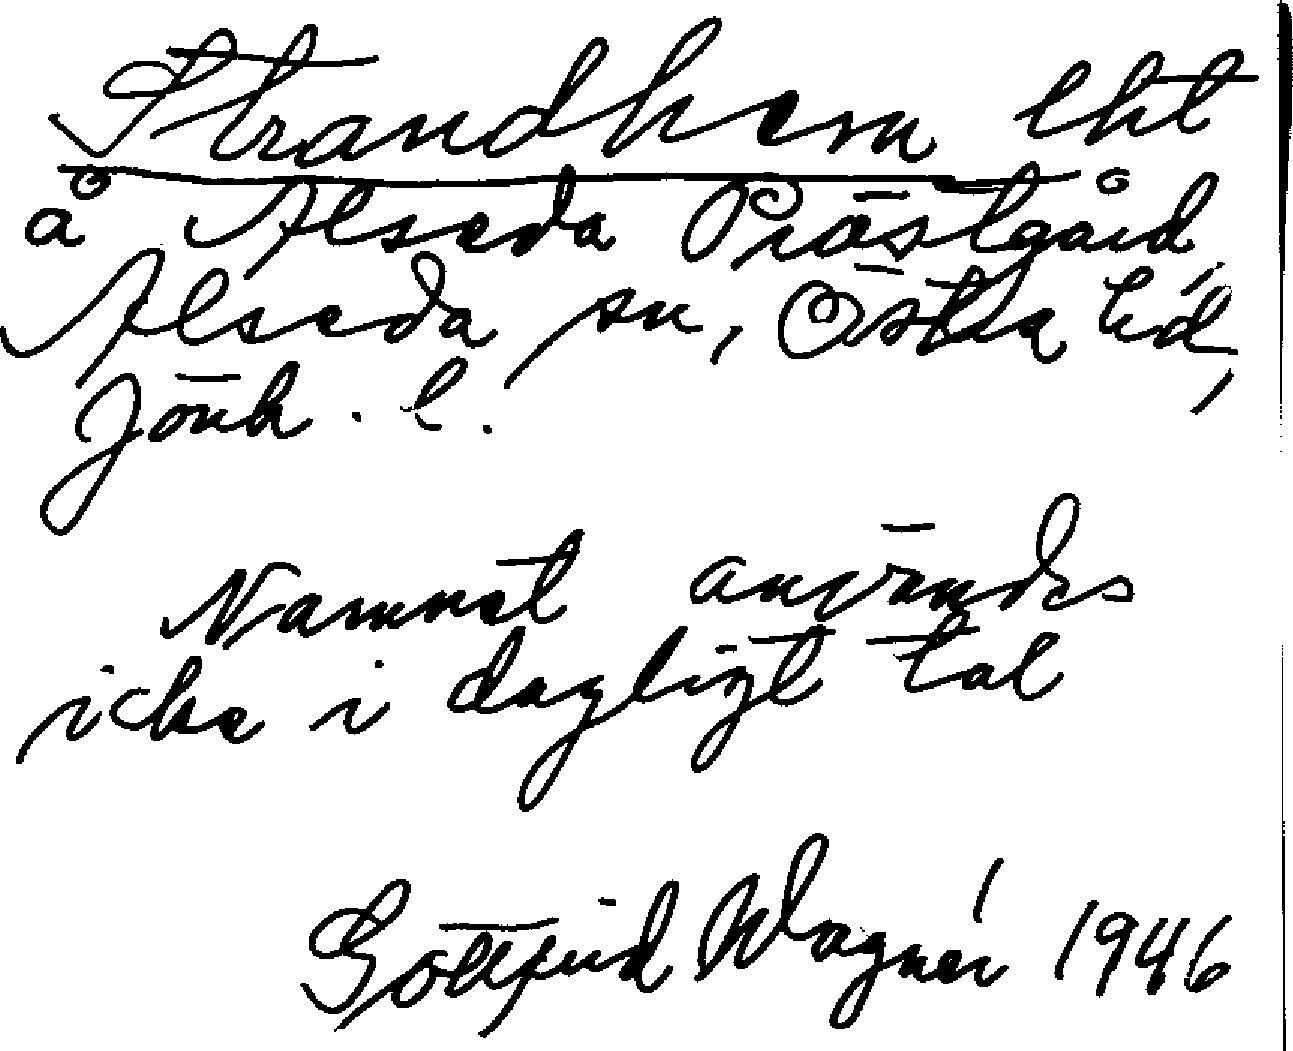 Strandhem lht
å Alseda Prästgård,
Alseda sn, Östra hd,
Jönk. l.
Namnet användes
icke i dagligt tal
Gottfrid Wagnér 1946